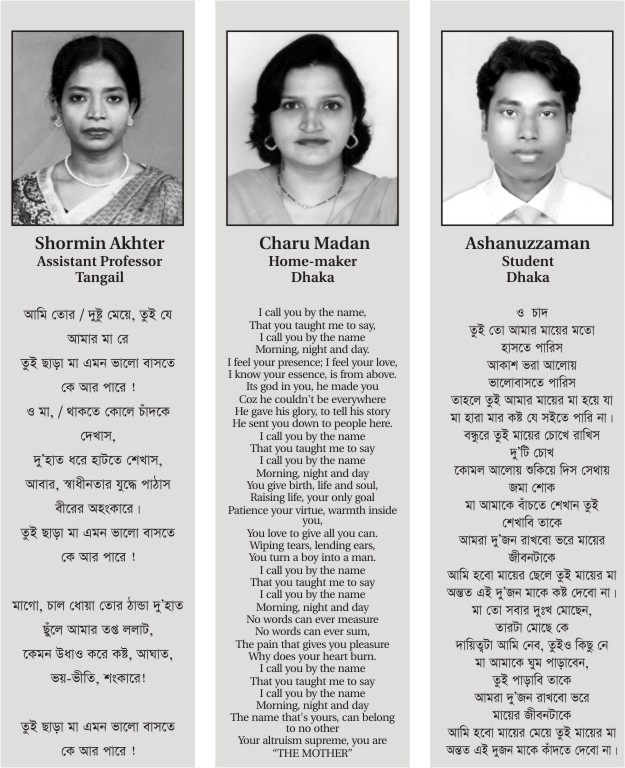 Shormin Akhter
Assistant Professor
Tangail
আমি তোর / দুষ্টু মেয়ে, তুই যে
আমার মা রে
তুই ছাড়া মা এমন ভালো বাসতে
কে আর পারে !
ও মা, / থাকতে কোলে চাঁদকে
দেখাস,
দু’হাত ধরে হাটতে শেখাস,
আবার, স্বাধীনতার যুদ্ধে পাঠাস
বীরের অহংকারে।
তুই ছাড়া মা এমন ভালো বাসতে
কে আর পারে !
মাগো, চাল ধোয়া তোর ঠান্ডা দু’হাত
ছুঁলে আমার তপ্ত ললাট,
কেমন উধাও করে কষ্ট, আঘাত,
ভয়-ভীতি, শংকারে!
তুই ছাড়া মা এমন ভালো বাসতে
কে আর পারে !
Charu Madan
Home-maker
Dhaka
I call you by the name,
That you taught me to say,
I call you by the name
Morning, night and day.
I feel your presence; I feel your love,
I know your essence, is from above.
Its god in you, he made you
Coz he couldn't be everywhere
He gave his glory, to tell his story
He sent you down to people here.
I call you by the name
That you taught me to say
I call you by the name
Morning, night and day
You give birth, life and soul,
Raising life, your only goal
Patience your virtue, warmth inside
you,
You love to give all you can.
Wiping tears, lending ears,
You turn a boy into a man.
I call you by the name
That you taught me to say
I call you by the name
Morning, night and day
No words can ever measure
No words can ever sum,
The pain that gives you pleasure
Why does your heart burn.
I call you by the name
That you taught me to say
I call you by the name
Morning, night and day
The name that's yours, can belong
to no other
Your altruism supreme, you are
“THE MOTHER”
Ashanuzzaman
Student
Dhaka
ও চাদ
তুই তো আমার মায়ের মতো
হাসতে পারিস
আকাশ ভরা আলোয়
ভালোবাসতে পারিস
তাহলে তুই আমার মায়ের মা হয়ে যা
মা হারা মার কষ্ট যে সইতে পারি না।
বন্ধুরে তুই মায়ের চোখে রাখিস
দু’টি চোখ
কোমল আলোয় শুকিয়ে দিস সেথায়
জমা শোক
মা আমাকে বাঁচতে শেখান তুই
শেখাবি তাকে
আমরা দু’জন রাখবো ভরে মায়ের
জীবনটাকে
আমি হবো মায়ের ছেলে তুই মায়ের মা
অন্তত এই দু’জন মাকে কষ্ট দেবো না।
মা তো সবার দুঃখ মোছেন,
তারটা মোছে কে
দায়িত্বটা আমি নেব, তুইও কিছু নে
মা আমাকে ঘুম পাড়াবেন,
তুই পাড়াবি তাকে
আমরা দু’জন রাখবো ভরে
মায়ের জীবনটাকে
আমি হবো মায়ের মেয়ে তুই মায়ের মা
অন্তত এই দুজন মাকে কাঁদতে দেবো না।